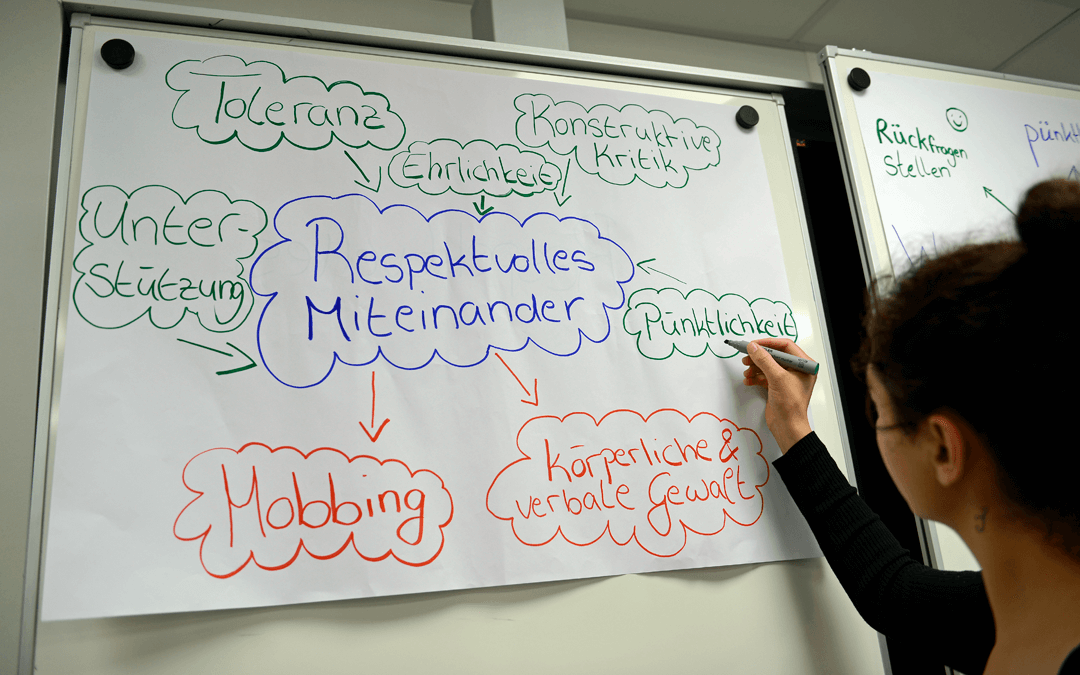 Toleranz
Ehrlichkeit
Konstruktive
Kritik
Unter-
stützung
Respektvolles
Miteinander
Pünktlichkeit
Mobbing
Körperliche &
verbale Gewalt
Rückfragen
stellen